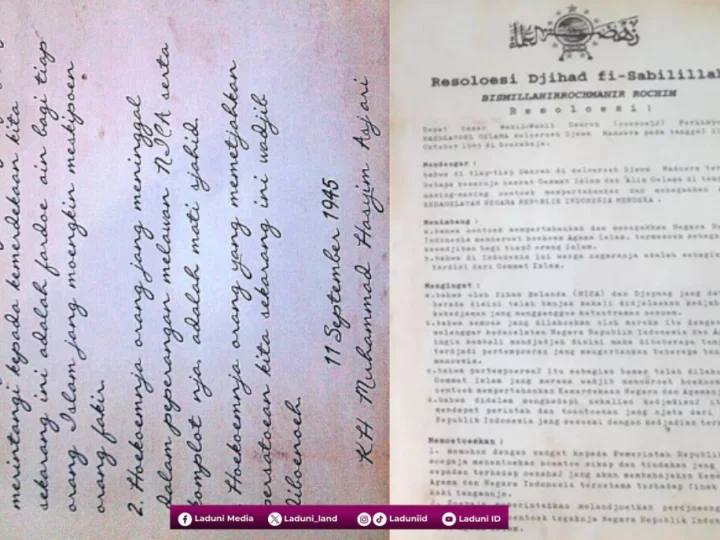 merintangi kepada kemerdekaan kita
sekarang ini adalah fardoe ain bagi tiap
orang Islam jang moengkin meskipoen
orang fakir
2. Hoekoemnja orang jang meninggal
dalam peperangan melawan NICA serta
komplot nja, adalah mati sjahid.
Hoekoemnja orang yang memetjahkan
persatoean kita sekarang ini wadjib
diboenoeh.
11 September 1945
KH Muhammad Hasyim Asjari
Resoloesi Djihad fi-Sabilillah
BISMILLAHIRROCHMANIR ROCHIM
Resoloesi :
Rapat besar Wakil-Wakil Daerah
OELAMA seloeroeh Djawa Madoera pada tanggal
October 1945 di Soerabaja.
Mendengar :
bahwa di tiap-tiap Daerah di seloeroeh Djawa Madoera
betapa besarnja hasrat Oemmat Islam dan Alim Oelama di
masing-masing oentoek mempertahankan dan menegakkan
KEDAOELATAN NEGARA REPUBLIK INDONESIA MERDEKA .
Menimbang :
a. bahwa oentoek mempertahankan dan menegakkan Negara
Indonesia menoeroet hoekoem Agama Islam, termasoek sebagai
kewadjiban bagi tiap2 orang Islam.
b. bahwa di Indonesia ini warga negaranja adalah sebagian
terdiri dari Oemmat Islam.
Mengingat :
a. bahwa oleh fihak Belanda (NICA) dan Djepang jang
berada disini telah banjak sekali didjalankan
kekedjaman jang mengganggoe ketentraman oemoem.
b. bahwa semoea jang dilakoekan oleh mereka itoe dengan
melanggar kedaoelatan Negara Republik Indonesia dan
ingin kembali mendjadjah disini maka dibeberapa
terdjadi pertempoeran jang mengorbankan beberapa
manoesia.
c. bahwa pertempoeran2 itoe sebagian besar telah
Oemmat Islam jang merasa wadjib menoeroet hoekoem
oentoek mempertahankan Kemerdekaan Negara dan
d. bahwa didalam menghadapi sekalian kedjadian2
mendapat perintah dan toentoenan jang njata dari
Republik Indonesia jang sesoeai dengan kedjadian
Memoetoeskan :
1. Memohon dengan sangat kepada Pemerintah Republik
soepaja menentoekan soeatoe sikap dan tindakan jang
sepadan terhadap oesaha2 jang akan membahajakan
Agama dan Negara Indonesia teroetama terhadap fihak
kaki tangannja.
Laduni Media
Laduni_land
Laduniid
Laduni ID